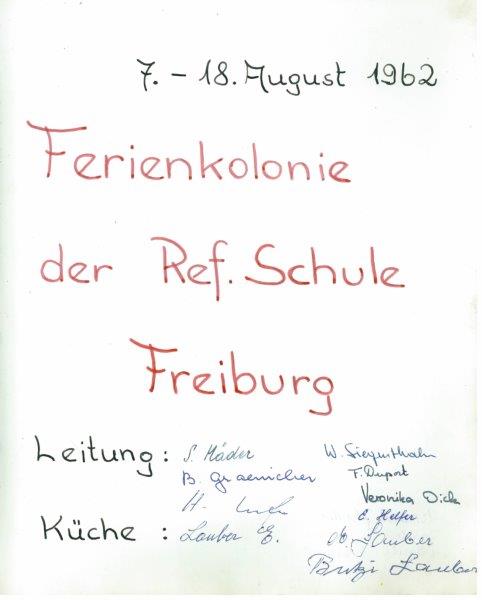 7. – 18. August 1962
Ferienkolonie
der Ref. Schule
Freiburg
Leitung: S. Mäder
W. Siegenthaler
B. Graenicher
F. Duport
H.
Veronika Dick
E. Helfer
Küche : Lauber E.
Lauber
Butzi Lauber